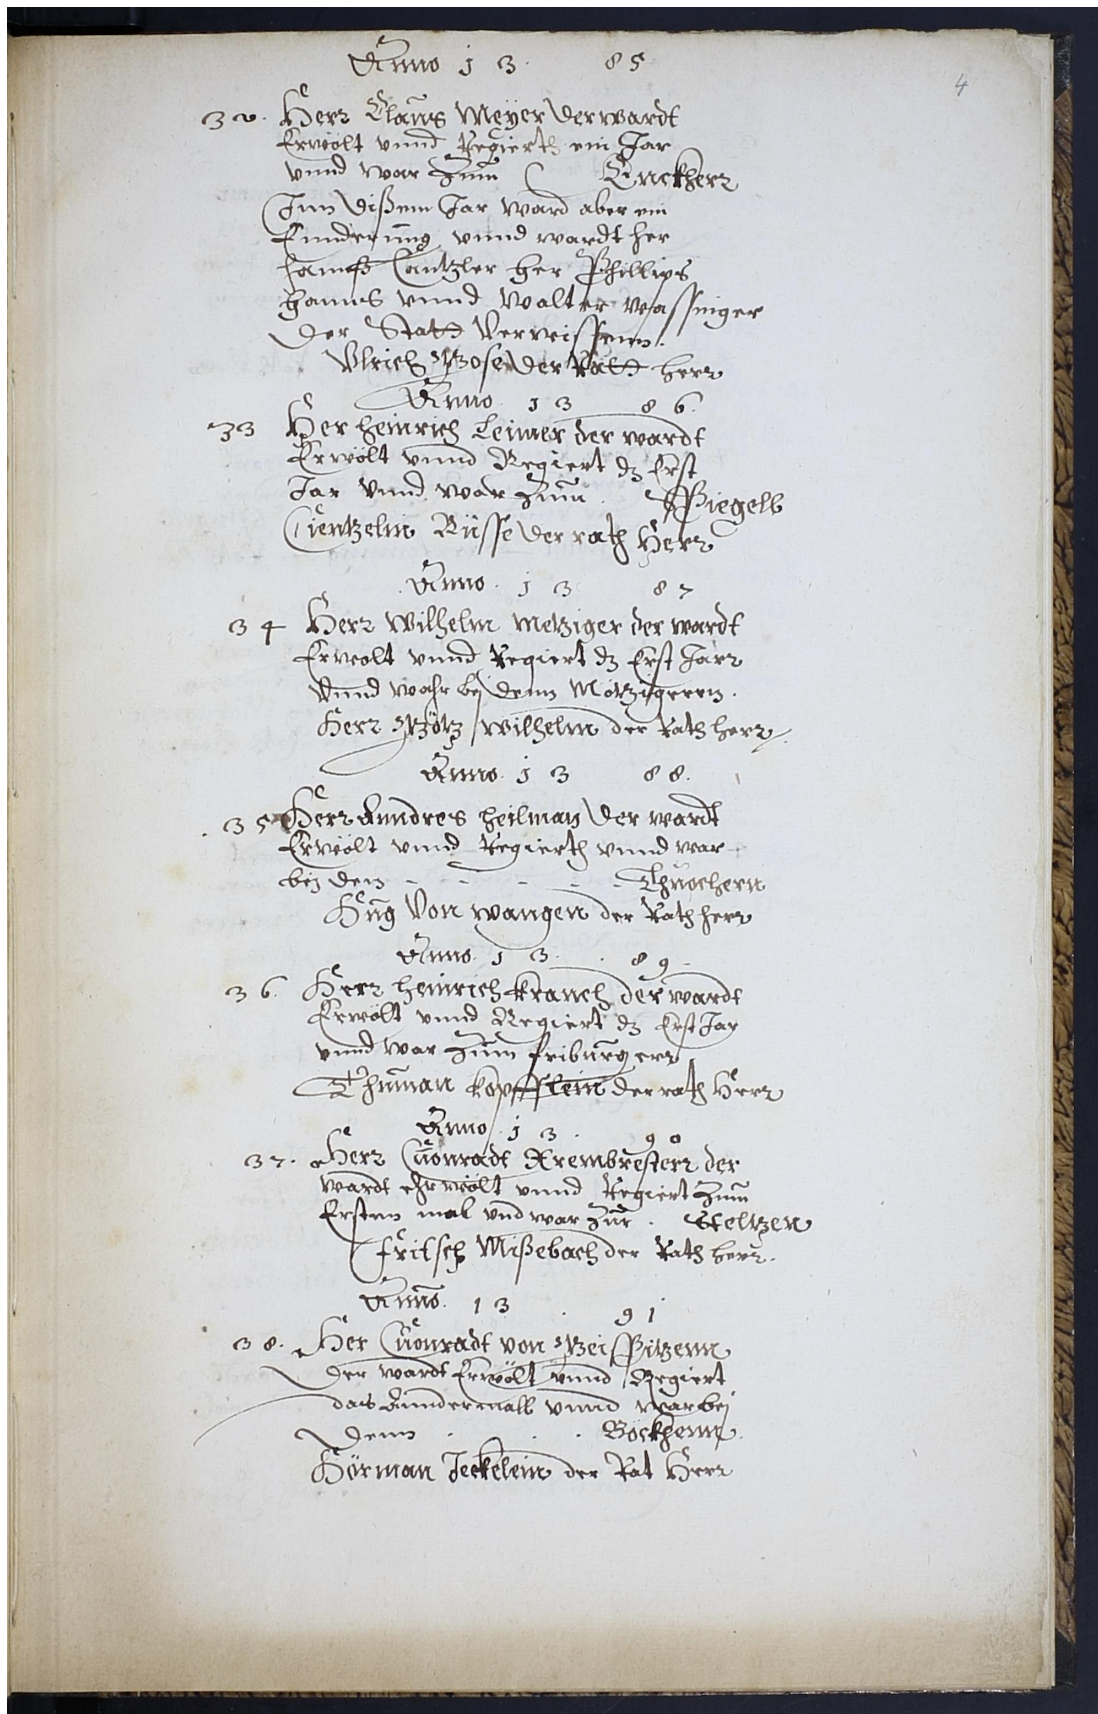 Anno 13 85
4
32. Herr Claus Meÿer der wardt
Erwölt vnnd Regierth ein Jar
vnnd war Zum Enckherr
Jnn dißem Jar ward aber ein
Ennderung vnnd wardt her
hanß Cantzler her Phillips
hanns vnnd walter wassinger
der Statt Verwissenn.
Vlrich Bose der Ratt herr
Anno 13 86.
33 Her heinrich Leimer der wardt
Erwölt vnnd Regiert dz Erst
Jar vnnd war Zum Spiegell
Cüentzelin Büsse der rath Herr
Anno. 13 87
34 Herr Wilhelm Metziger der wardt
Erwolt vnnd Regiert dz Erst Jarr
Vnnd wahr bej denn Metzigeren.
Herr Götz wilhelm der Rath herr
Anno. 13 88.
35 Herr Anndres heilman der wardt
Erwölt vnnd Regierth vnnd war
bej den - - - - Thuochern
Hug Von wangen der Rath herr
Anno. 13. 89.
36. Herr heinrich Kranch der wardt
Erwölt vnnd Regiert dz Erst Jar
vnnd war Zum friburgerr
Thuman kopfflein der rath Herr
Anno. 13. 90
37. Herr Cuonradt Armbrester der
wardt ehrwölt vnnd Regiert Zum
Ersten mal vnd war Zur. Steltzen
fritsch Mißebach der Rath herr.
Anno. 13. 91
38. Her Cuonradt von Geispitzenn
der wardt Erwölt vnnd Regiert
das Andermall vnnd war bej
Denn . . . Böckhenn.
Hörman Jeckelein der Rat Herr